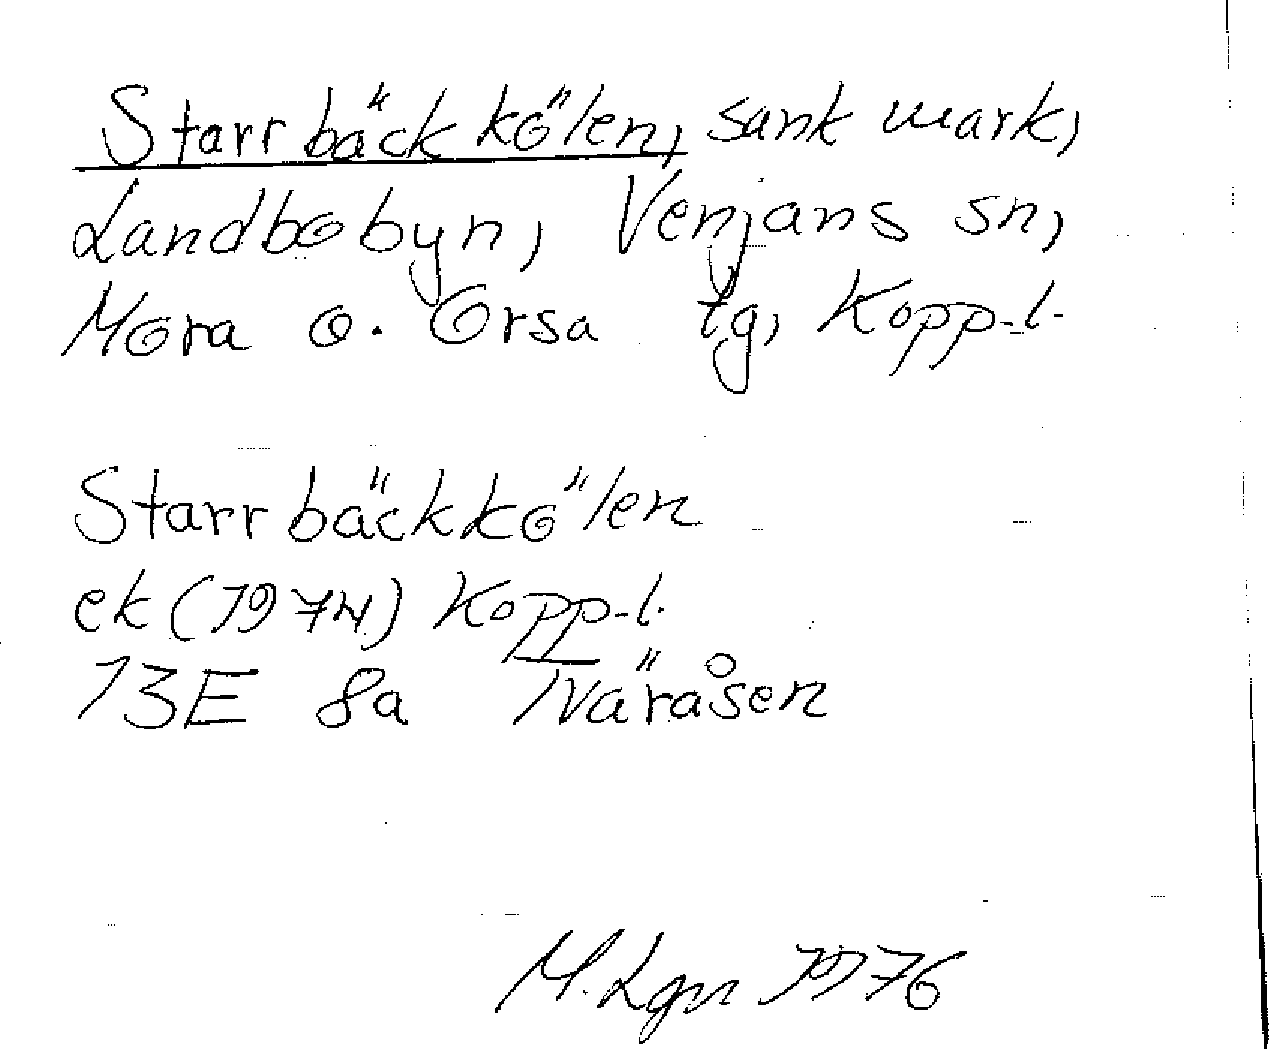 Starrbäckkölen, sank mark,
Landbobyn, Venjans sn,
Mora o. Orsa tg, Kopp.l.
Starrbäckkölen
ek (1974) Kopp.l.
13E 8a Tväråsen
M. Lgn 1976